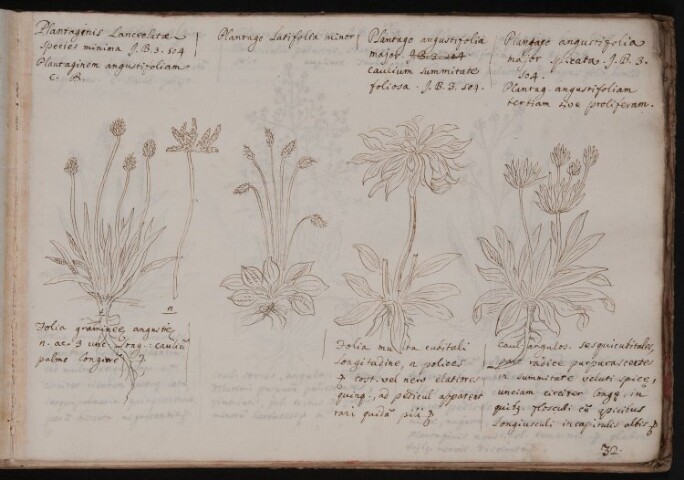 Plantaginis Lanceolatæ
species minima J.B. 3. 504
Plantaginem angustifoliam
C. B.
Plantago Latifolia minor
Plantago angustifolia
major J.B. 3. 504
caulium summitate
foliosa. J.B. 3. 504.
Plantago angustifolia
major spicata. J.B. 3.
504.
Plantag. angustifoliam
tertiam sive proliferam.
n
Folia graminea angusta
n. ac. 3 unc. Long.: caulium
palmo longiores
Folia multa cubitali
Longitudine, a pollices
cost. vel nervi elatiores
quinq., ad pedicul apparent
rari quidã pili
caul. angulos. sesquicubitales,
radice purpurascentes
in summitate veluti spice,
unciam circiter long., in
quibz. flosculi cũ spicibus
Longiusculi in capitulis albis
32.